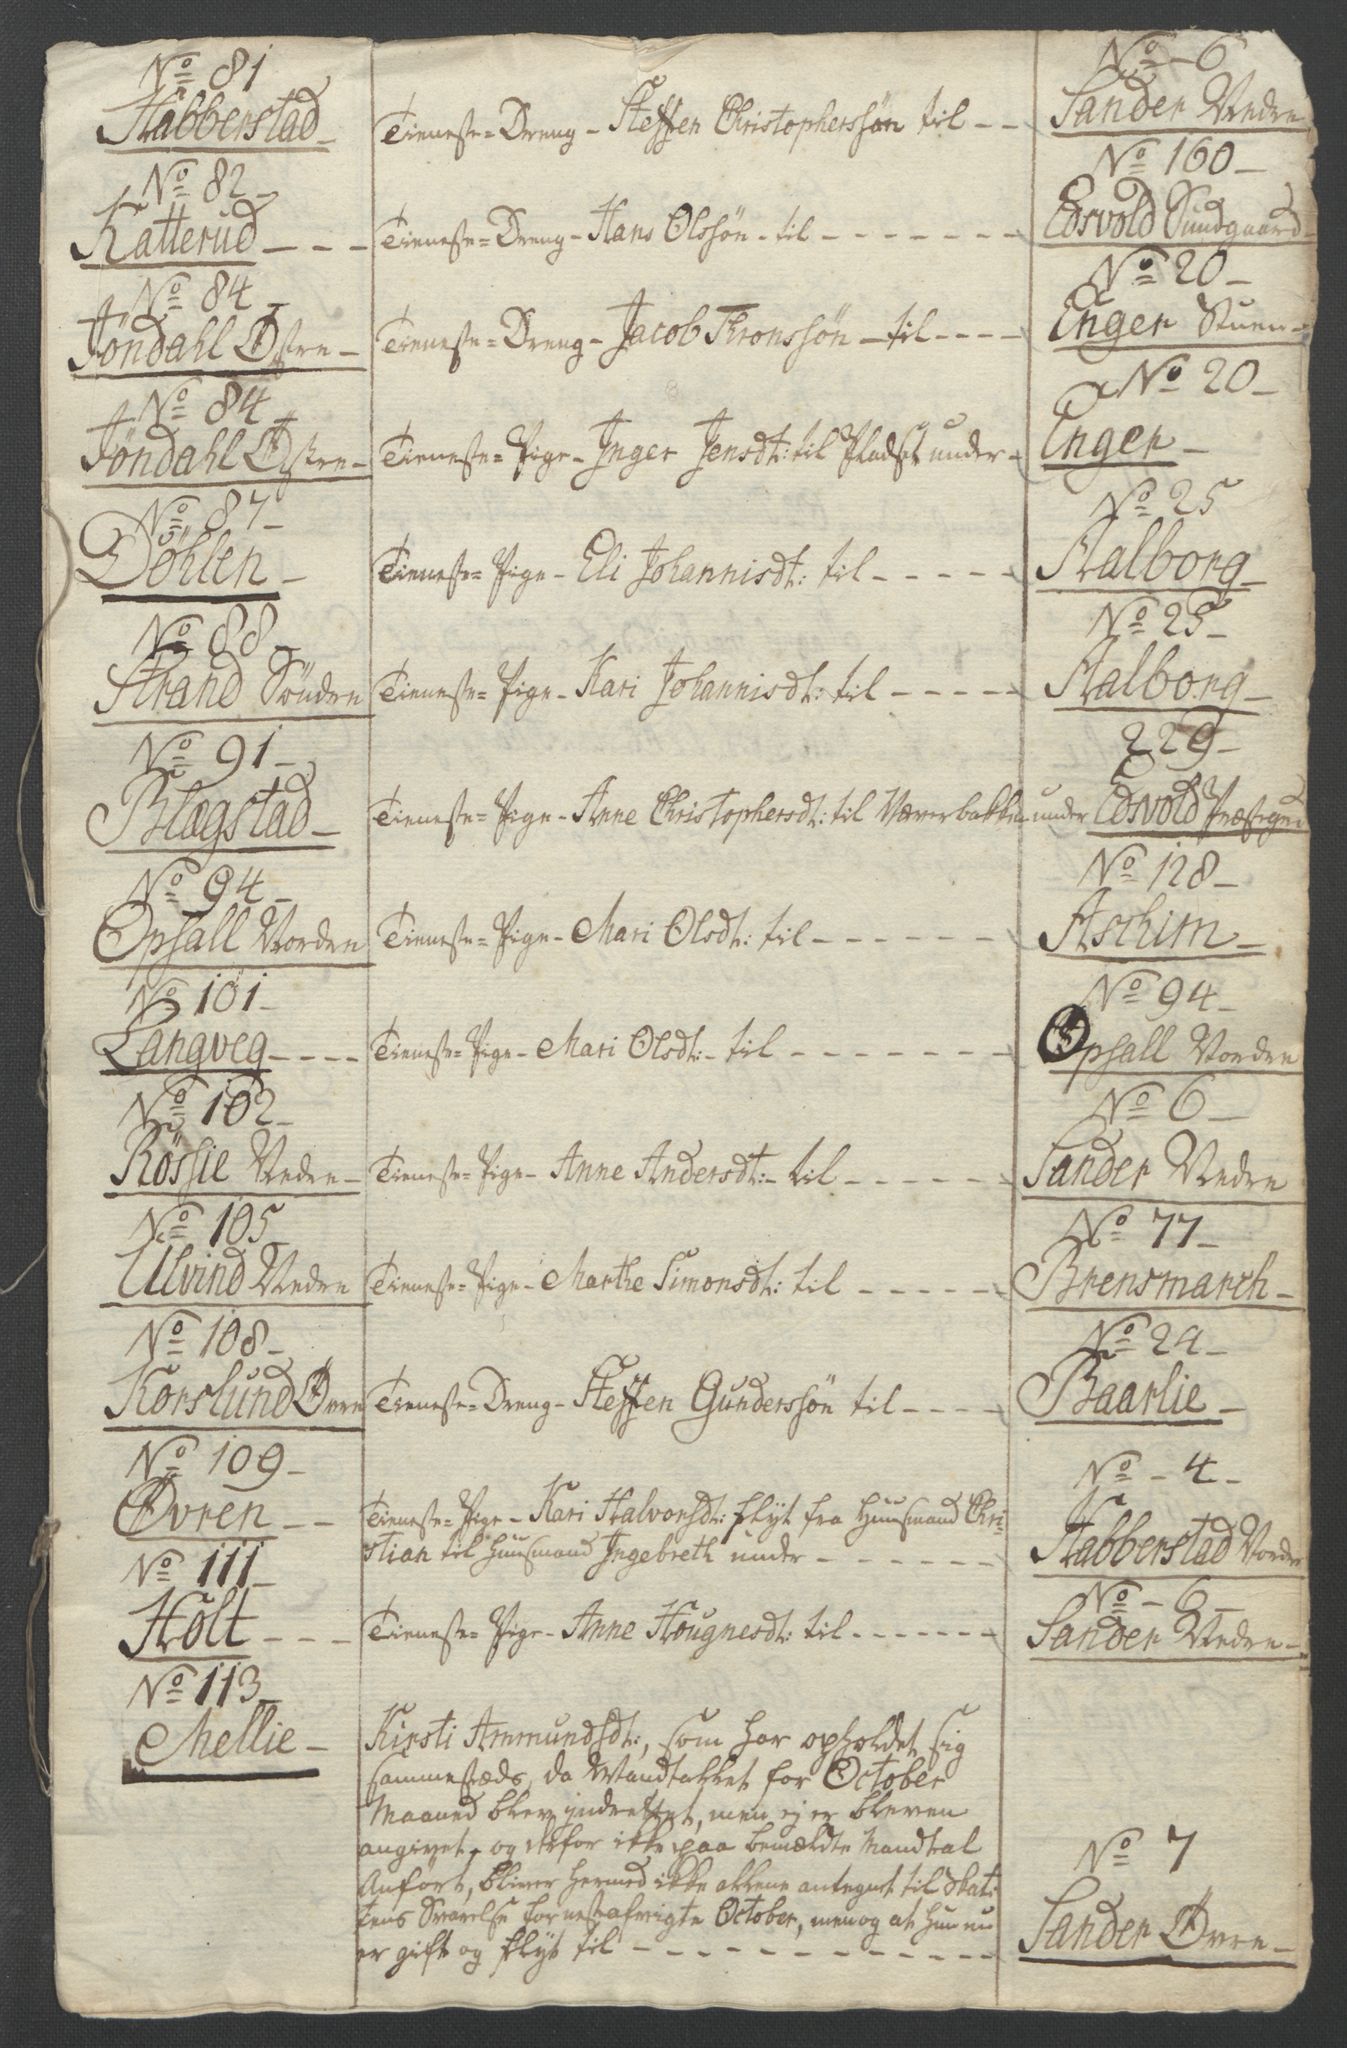 No 81
Habberstad – Tieneste=Dreng – Steffen Christopherssøn til – –
No – 6
Sander Nedre
No 82 –
Katterud – – – Tieneste=Dreng – Hans Olssøn – til – – – – – – –
No 160 –
Edsvold Sundgaard
No 84
Jöndahl Østre – Tieneste=Dreng – Jacob Thronssön – til – – – –
No 20 –
Enger Stuen –
No 84
Jöndahl Østre – Tieneste=Pige – Inger Jensdt: til Pladset under –
No 20 –
Enger –
No 87 –
Döhlen – Tieneste=Pige – Eli Johannisdt: til – – – – –
No 25
Aalborg –
No 88 –
Strand Söndre Tieneste=Pige – Kari Johannisdt: til – – – – –
No 25 –
Aalborg –
No 91 –
Blegstad – Tieneste=Pige – Anne Christophersdt: til Værerbakken under
229 –
Edsvold Præstegrd
No 94 –
Ophall Nordre Tieneste=Pige – Mari Olsdt: til – – – – – –
No 128 –
Aschim –
No 101 –
Langveg – – – – Tieneste=Pige – Mari Olsdt: – til – – – – – – –
No 94 –
Ophall Nordre
No 102 –
Rössie Nedre – Tieneste=Pige – Anne Andersdt: – til – – – – –
No 6 –
Sander Nedre
No 105
Ulvind Nedre Tieneste=Pige – Marthe Simonsdt: til – – – – –
No 77 –
Brensmarch –
No 108 –
Korslund Øvre Tieneste=Dreng – Steffen Gunderssön til – – – –
No 24 –
Baarlie –
No 109 –
Øvren – – Tieneste=Pige – Kari Halvorsdt: flyt fra Huusmand Chri-
stian til Huusmand Ingebreth under – – – – – –
No – 4 –
Habberstad Nordre
No 111 –
Holt – – – Tieneste=Pige – Anne Hougnesdt: til – – – – – – –
No – 6 –
Sander Nedre –
No 113
Mellie – Kirsti Ammundsdt:, som har opholdet sig
sammestæds, da Mandtallet for October
Maaned blev indrettet, men ej er bleven
angivet, og derfor ikke paa bemældte Mandtal
Anført, bliver hermed ikke alleene antegnet til Skat-
tens Svarelse for nestafvigte October, men og at hun nu
er gift og flyt til – – – – – – – – – – – –
No 7
Sander Øvre –